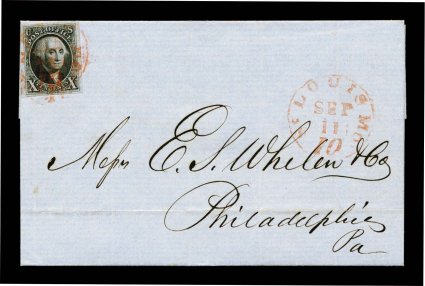 POST OFFICE
X X
ST LOUIS MO
SEP
11
10
Messrs E. S. Whelen & Co
Philadelphia
Pa